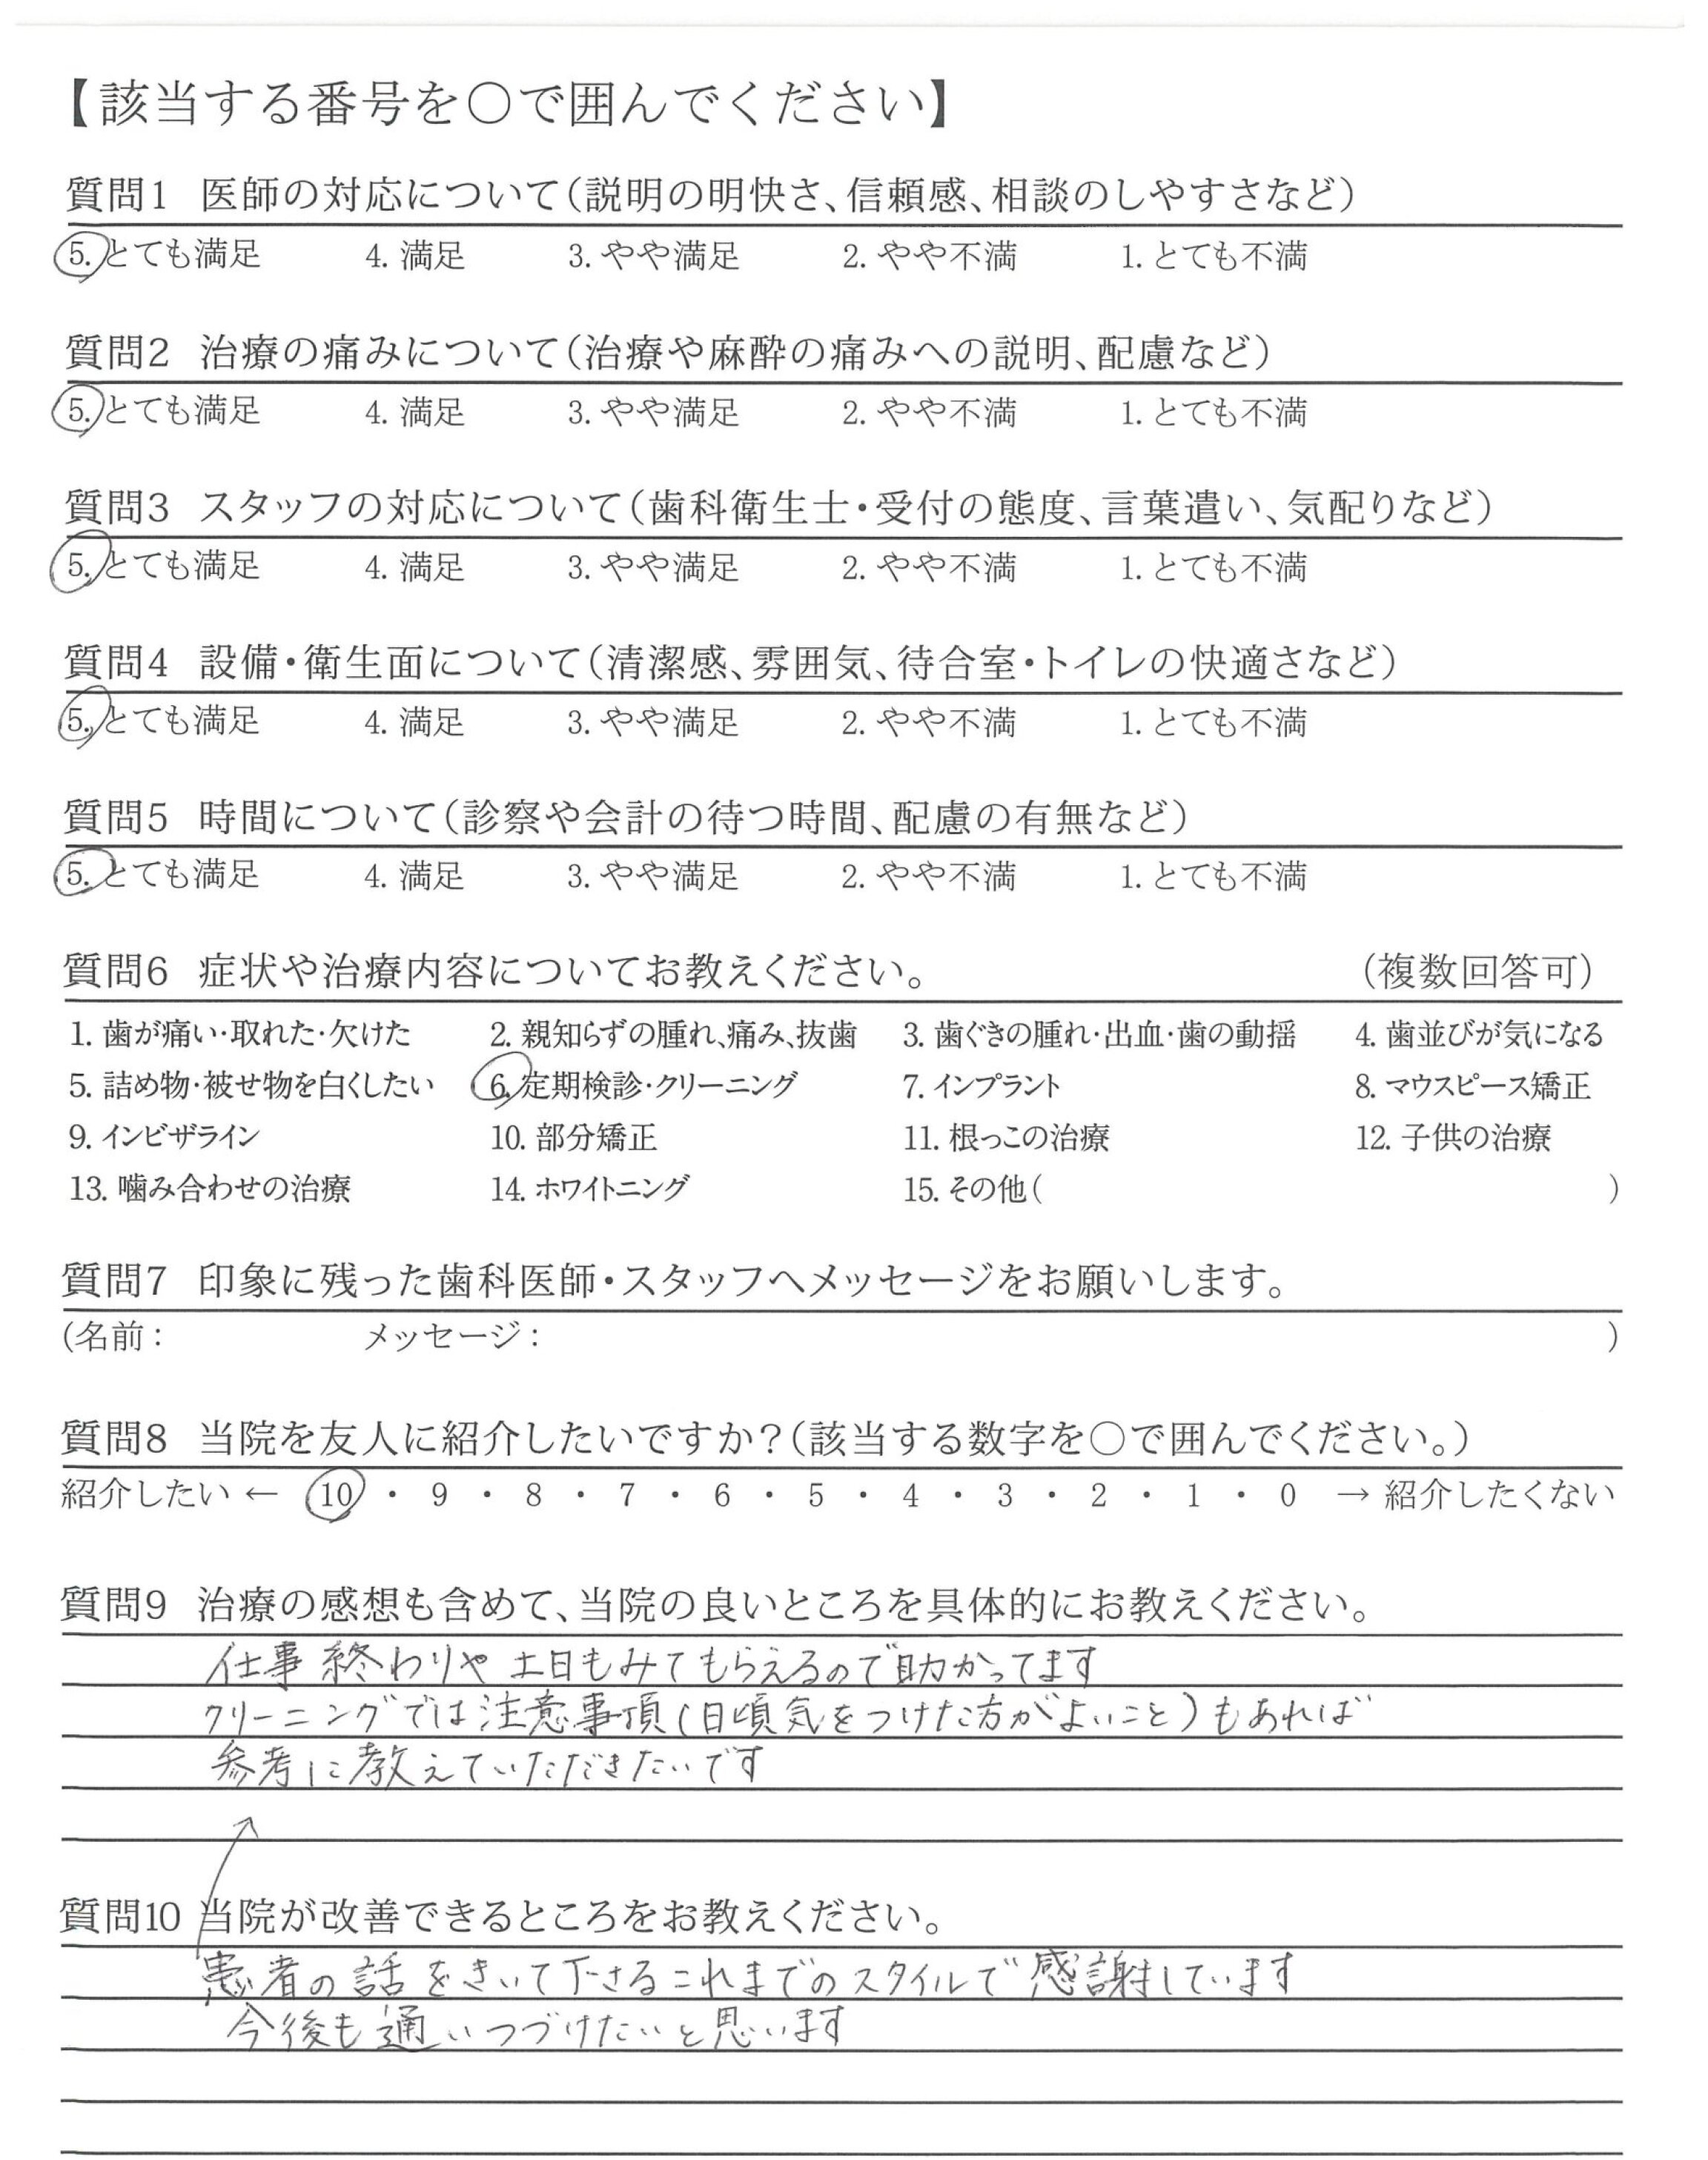 【該当する番号を○で囲んでください】
質問1 医師の対応について(説明の明快さ、信頼感、相談のしやすさなど)
5. とても満足 4. 満足 3. やや満足 2. やや不満 1. とても不満
質問2 治療の痛みについて(治療や麻酔の痛みへの説明、配慮など)
5. とても満足 4. 満足 3. やや満足 2. やや不満 1. とても不満
質問3 スタッフの対応について(歯科衛生士・受付の態度、言葉遣い、気配りなど)
5. とても満足 4. 満足 3. やや満足 2. やや不満 1. とても不満
質問4 設備・衛生面について(清潔感、雰囲気、待合室・トイレの快適さなど)
5. とても満足 4. 満足 3. やや満足 2. やや不満 1. とても不満
質問5 時間について(診察や会計の待つ時間、配慮の有無など)
5. とても満足 4. 満足 3. やや満足 2. やや不満 1. とても不満
質問6 症状や治療内容についてお教えください。 (複数回答可)
1. 歯が痛い・取れた・欠けた 2. 親知らずの腫れ、痛み、抜歯 3. 歯ぐきの腫れ・出血・歯の動揺 4. 歯並びが気になる
5. 詰め物・被せ物を白くしたい 6. 定期検診・クリーニング 7. インプラント 8. マウスピース矯正
9. インビザライン 10. 部分矯正 11. 根っこの治療 12. 子供の治療
13. 噛み合わせの治療 14. ホワイトニング 15. その他( )
質問7 印象に残った歯科医師・スタッフへメッセージをお願いします。
(名前: メッセージ: )
質問8 当院を友人に紹介したいですか?(該当する数字を○で囲んでください。)
紹介したい ← 10 ・ 9 ・ 8 ・ 7 ・ 6 ・ 5 ・ 4 ・ 3 ・ 2 ・ 1 ・ 0 → 紹介したくない
質問9 治療の感想も含めて、当院の良いところを具体的にお教えください。
仕事終わりや土日もみてもらえるので助かってます
クリーニングでは注意事項(日頃気をつけた方がよいこと)もあれば
参考に教えていただきたいです
質問10 当院が改善できるところをお教えください。
患者の話をきいて下さるこれまでのスタイルで感謝しています
今後も通いつづけたいと思います